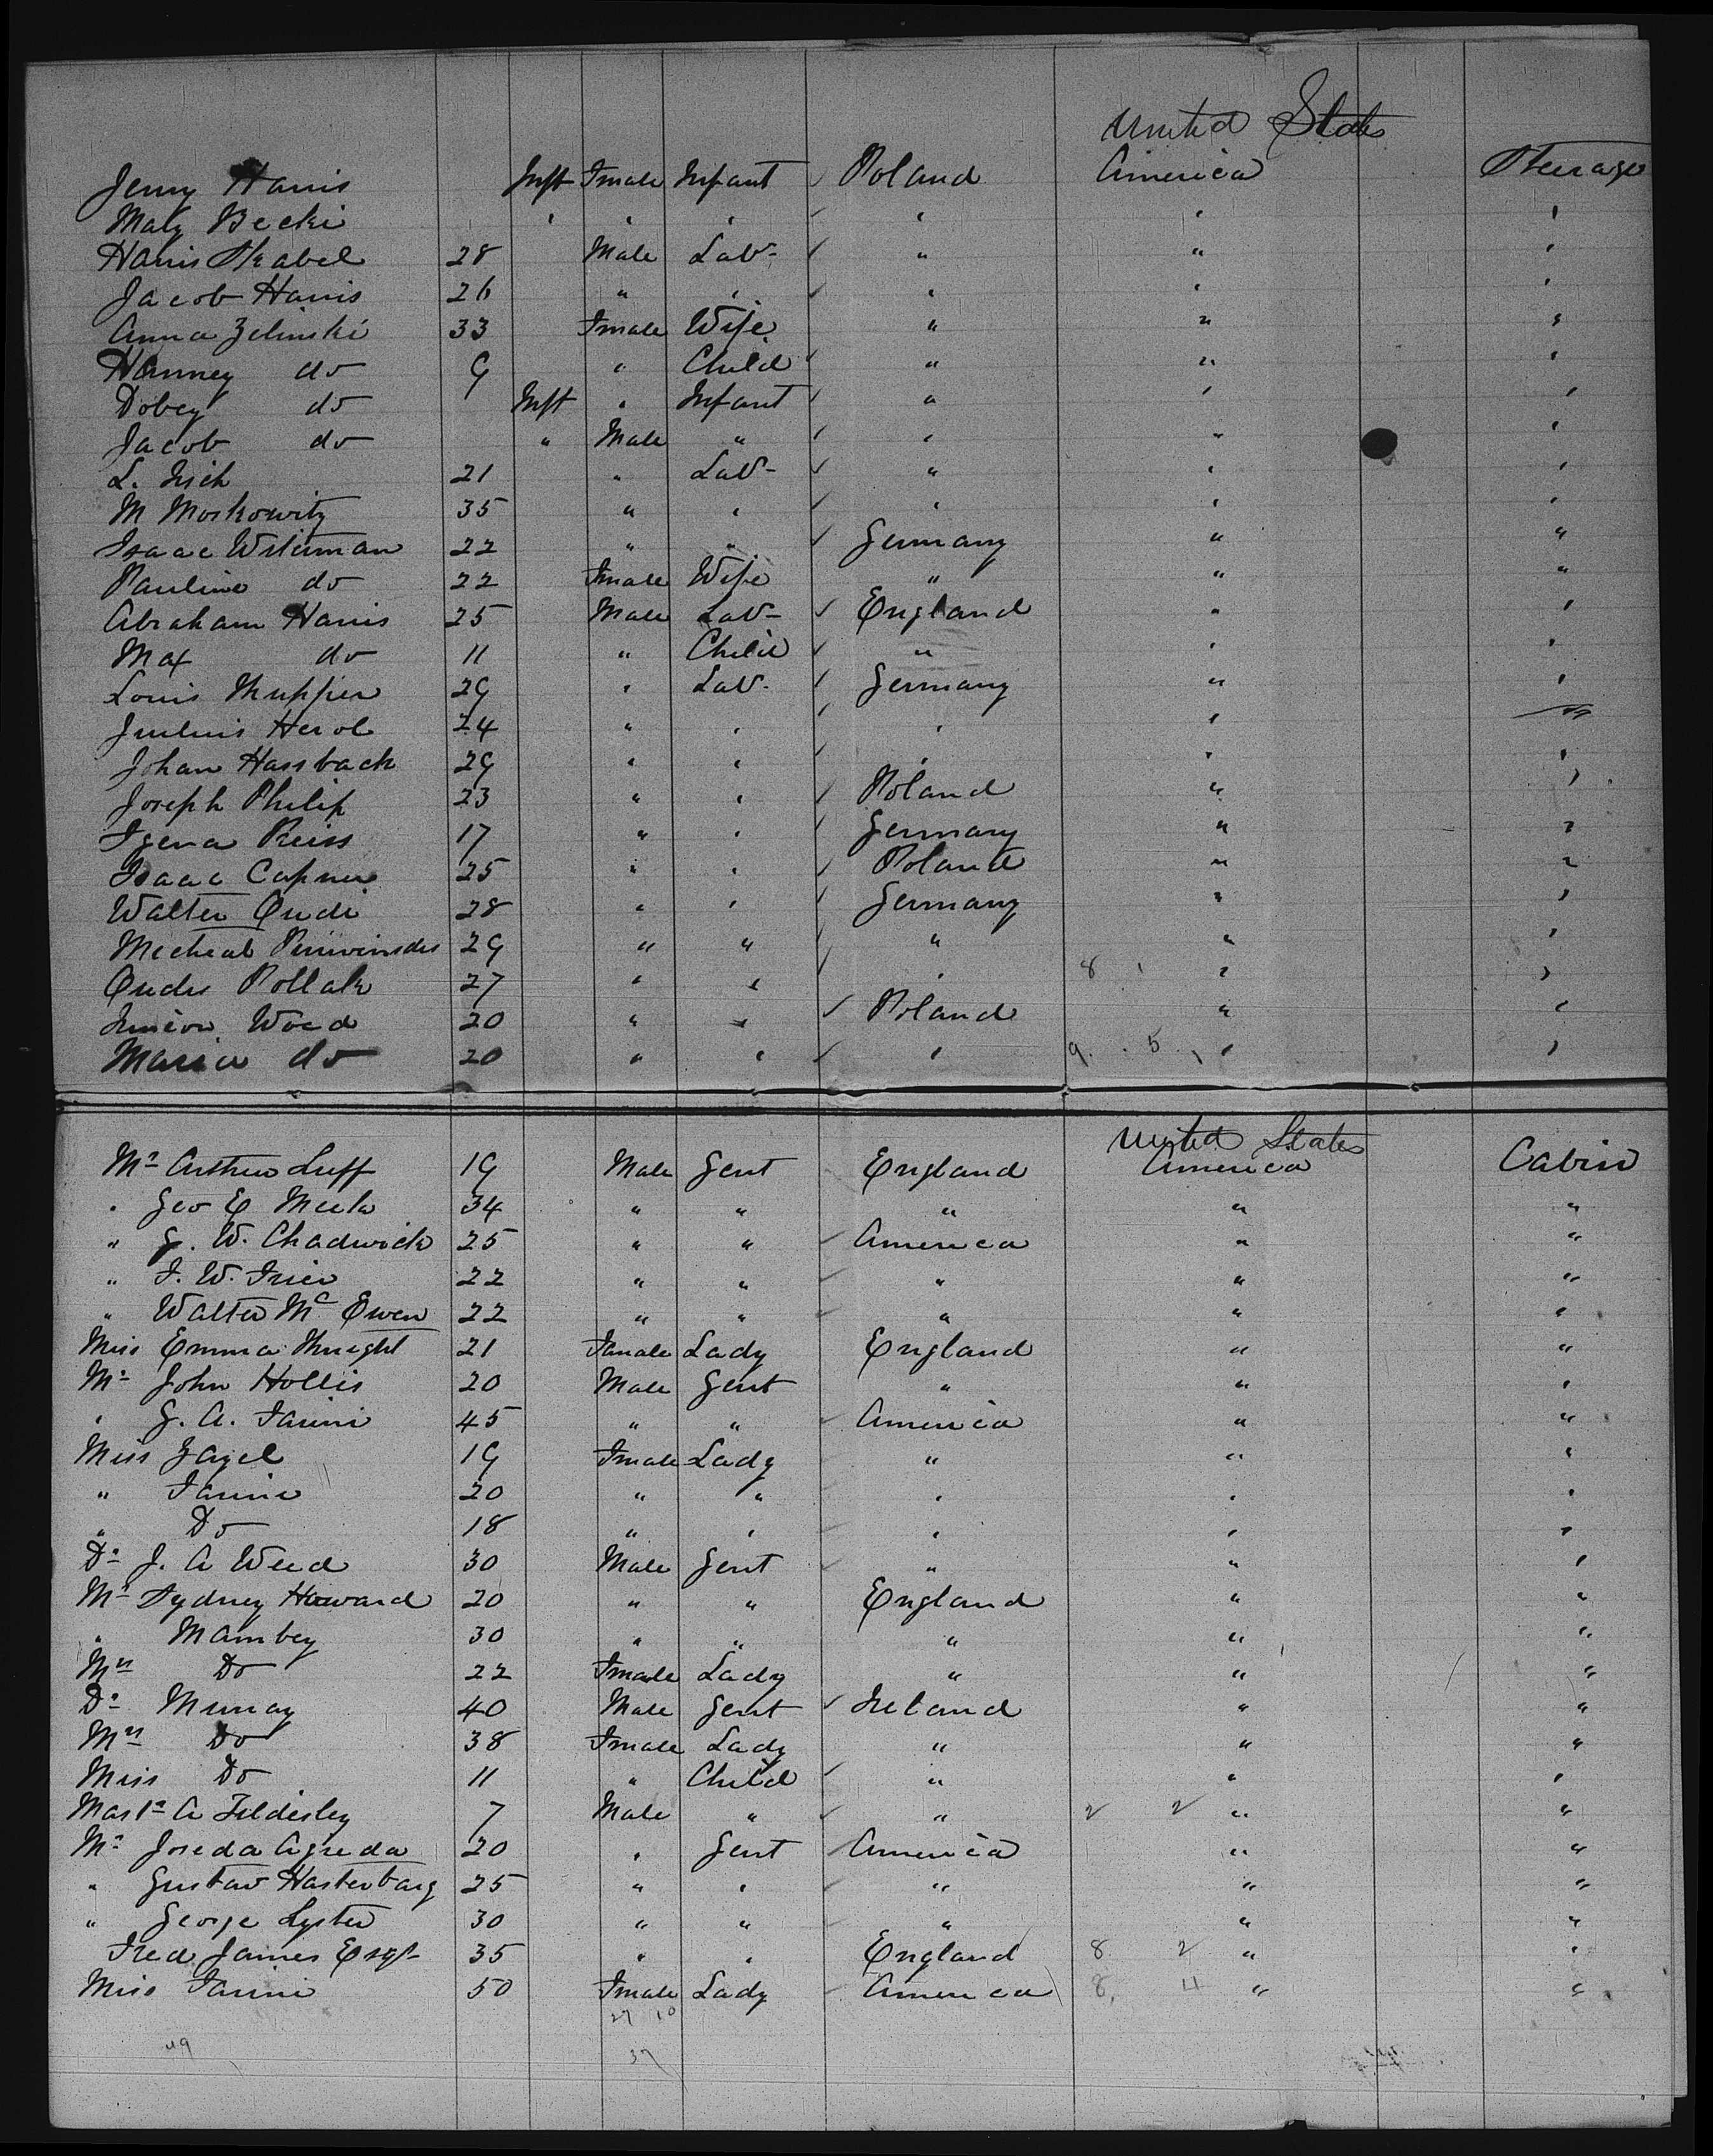 United States
Jenny Harris Inft Fmale Infant ✓ Poland America Steerage
Maly Becki " " " ✓ " " "
Harris Skabel 28 Male Lab- ✓ " " "
Jacob Harris 26 " " ✓ " " "
Anna Zelinski 33 Fmale Wife " " "
Hanney do 9 " Child ✓ " " "
Dobey do Inft " Infant ✓ " " "
Jacob do " Male " ✓ " " "
L. 21 " Lab- ✓ " " "
M Moskowitz 35 " " ✓ " " "
Isaac 22 " " ✓ Germany " "
Pauline do 22 Fmale Wife " " "
Abraham Harris 25 Male Lab- ✓ England " "
Max do 11 " Child ✓ " " "
Louis 29 " Lab- ✓ Germany " "
Herol 24 " " ✓ " " "
Johan Hassbach 29 " " ✓ " " "
Joseph Philip 23 " " ✓ Poland " "
Reiss 17 " " ✓ Germany " "
Isaac 25 " " ✓ Poland " "
Walter 28 " " ✓ Germany " "
Micheal 29 " " ✓ " " "
Pollak 27 " " ✓ " 8 1 " "
20 " " ✓ Poland " "
Maria do 20 " " ✓ " 9 5 " "
United States
Mr Arthur Luff 19 Male Gent England America Cabin
" Geo E 34 " " " " "
" G. W. Chadwick 25 " " ✓ America " "
" F. W. 22 " " ✓ " " "
" Walter Mc Ewen 22 " " ✓ " " "
Miss Emma Knight 21 Fmale Lady England " "
Mr John Hollis 20 Male Gent " " "
" G. A. Farini 45 " " ✓ America " "
Miss Zazel 19 Fmale Lady " " "
" Farini 20 " " ✓ " " "
" Do 18 " " ✓ " " "
Dr J. A Weed 30 Male Gent ✓ " " "
Mr Sydney Howard 20 " " England " "
" Mambey 30 " " " " "
Mrs Do 22 Fmale Lady " " "
Dr Murray 40 Male Gent ✓ Ireland " "
Mrs Do 38 Fmale Lady " " "
Miss Do 11 " Child ✓ " " "
Mastr A Tildesley 7 Male " ✓ " 2 2 " "
Mr Joseda Agreda 20 " Gent ✓ America " "
" Gustav 25 " " ✓ " " "
" George Lyster 30 " " ✓ " " "
Fred James Esqr 35 " " England 8 2 " "
Miss Farini 50 Fmale Lady ✓ America 8 4 " "
27 10
49 37